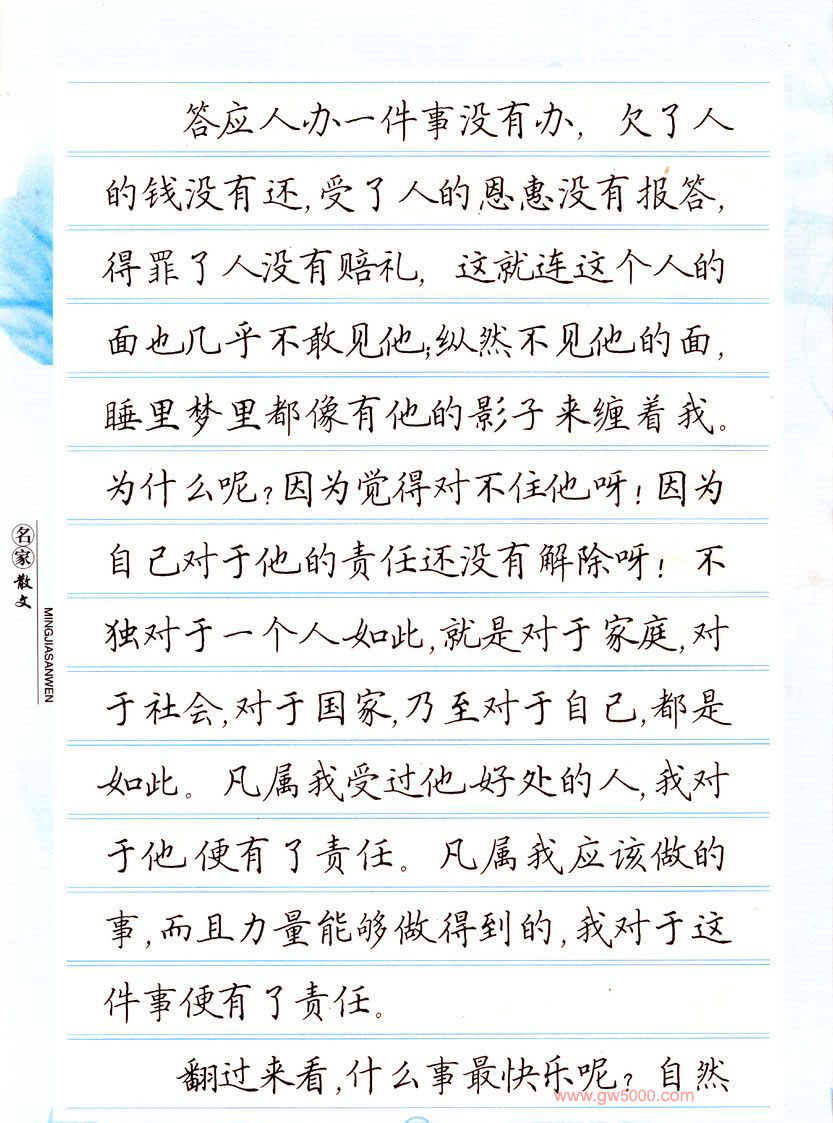 答应人办一件事没有办，欠了人
的钱没有还，受了人的恩惠没有报答，
得罪了人没有赔礼，这就连这个人的
面也几乎不敢见他；纵然不见他的面，
睡里梦里都像有他的影子来缠着我。
为什么呢？因为觉得对不住他呀！因为
自己对于他的责任还没有解除呀！不
独对于一个人如此，就是对于家庭，对
于社会，对于国家，乃至对于自己，都是
如此。凡属我受过他好处的人，我对
于他便有了责任。凡属我应该做的
事，而且力量能够做得到的，我对于这
件事便有了责任。
翻过来看，什么事最快乐呢？自然
名家散文
MINGJIASANWEN
www.gw5000.com